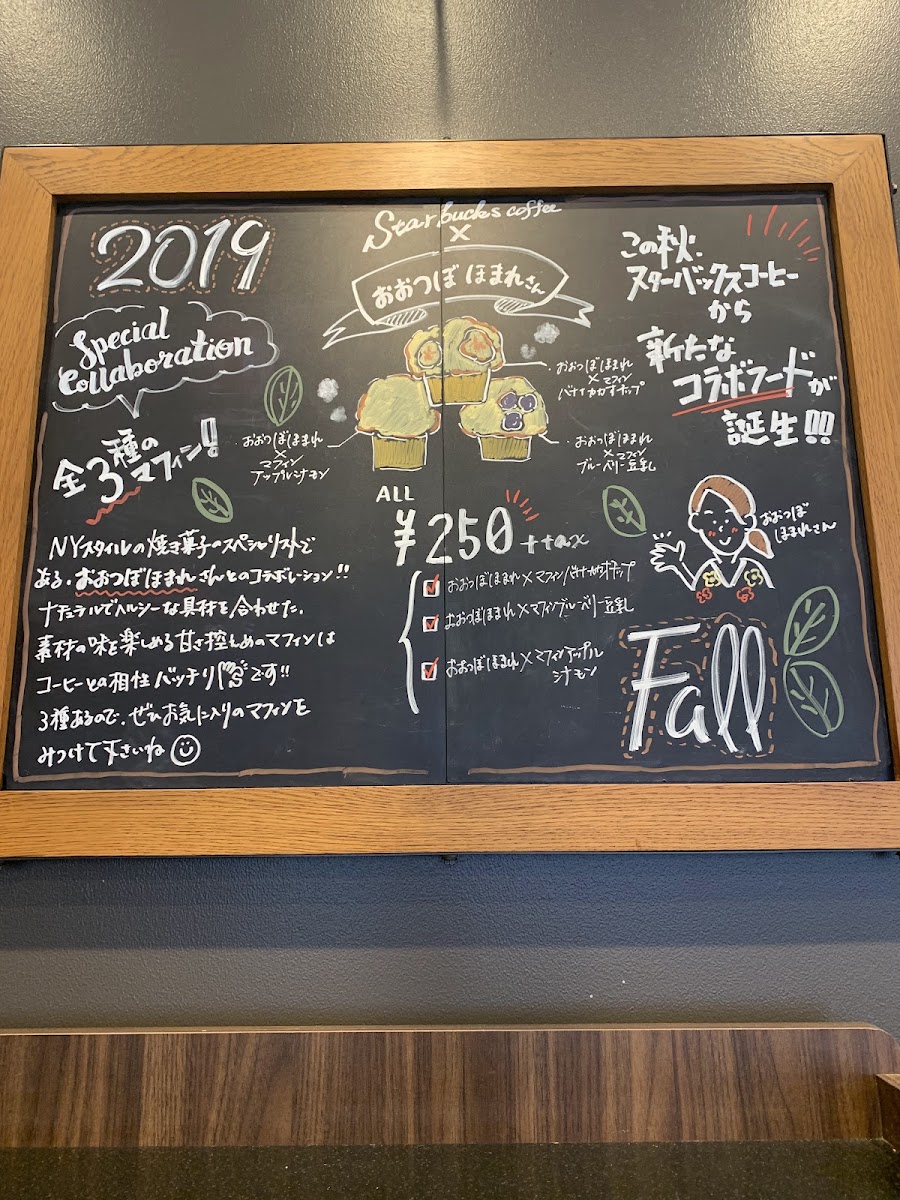 2019
Special
Collaboration
全3種の
マフィン!
Starbucks coffee
×
おおつぼ ほまれさん
おおつぼほまれ
×
マフィン
アップルシナモン
おおつぼほまれ
×マフィン
バナナカカオチップ
おおつぼほまれ
×マフィン
ブルーベリー豆乳
この秋、
スターバックスコーヒー
から
新たな
コラボフードが
誕生!!!
NYスタイルの焼き菓子のスペシャリストで
ある、おおつぼほまれさんとのコラボレーション!!
ナチュラルでヘルシーな具材を合わせた、
素材の味を楽しめる甘さ控えめのマフィンは
コーヒーとの相性バッチリです!!
3種あるので、ぜひお気に入りのマフィンを
みつけて下さいね
ALL
¥250 +tax
おおつぼほまれ×マフィンバナナカカオチップ
おおつぼほまれ×マフィンブルーベリー豆乳
おおつぼほまれ×マフィンアップル
シナモン
おおつぼ
ほまれさん
Fall